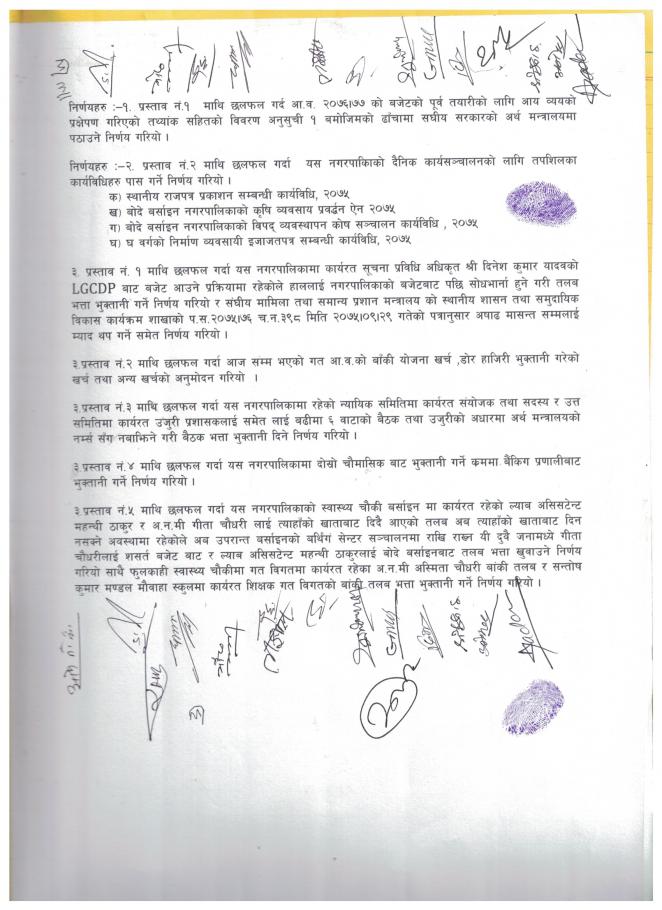 निर्णयहरु :–१. प्रस्ताव नं.१ माथि छलफल गर्द आ.व. २०७६।७७ को बजेटको पूर्व तयारीको लागि आय व्ययको
प्रक्षेपण गरिएको तथ्यांक सहितको विवरण अनुसुची १ बमोजिमको ढाँचामा संघीय सरकारको अर्थ मन्त्रालयमा
पठाउने निर्णय गरियो ।
निर्णयहरु :–२. प्रस्ताव नं.२ माथि छलफल गर्दा यस नगरपाकिाको दैनिक कार्यसञ्चालनको लागि तपशिलका
कार्यविधिहरु पास गर्ने निर्णय गरियो ।
क) स्थानीय राजपत्र प्रकाशन सम्बन्धी कार्यविधि, २०७५
ख) बोदे बर्साइन नगरपालिकाको कृषि व्यवसाय प्रवर्द्धन ऐन २०७५
ग) बोदे बर्साइन नगरपालिकाको विपद् व्यवस्थापन कोष सञ्चालन कार्यविधि , २०७५
घ) घ वर्गको निर्माण व्यवसायी इजाजतपत्र सम्बन्धी कार्यविधि, २०७५
३. प्रस्ताव नं. १ माथि छलफल गर्दा यस नगरपालिकामा कार्यरत सूचना प्रविधि अधिकृत श्री दिनेश कुमार यादवको
LGCDP बाट बजेट आउने प्रक्रियामा रहेकोले हाललाई नगरपालिकाको बजेटबाट पछि सोधभार्ना हुने गरी तलब
भत्ता भुक्तानी गर्ने निर्णय गरियो र संघीय मामिला तथा समान्य प्रशान मन्त्रालय को स्थानीय शासन तथा समुदायिक
विकास कार्यक्रम शाखाको प.स.२०७५।७६ च.न.३९८ मिति २०७५।०९।२९ गतेको पत्रानुसार अषाढ मासन्त सम्मलाई
म्याद थप गर्ने समेत निर्णय गरियो ।
३.प्रस्ताव नं.२ माथि छलफल गर्दा आज सम्म भएको गत आ.व.को बाँकी योजना खर्च ,डोर हाजिरी भुक्तानी गरेको
खर्च तथा अन्य खर्चको अनुमोदन गरियो ।
३.प्रस्ताव नं.३ माथि छलफल गर्दा यस नगरपालिकामा रहेको न्यायिक समितिमा कार्यरत संयोजक तथा सदस्य र उत्त
समितिमा कार्यरत उजुरी प्रशासकलाई समेत लाई बढीमा ६ वाटाको बैठक तथा उजुरीको अधारमा अर्थ मन्त्रालयको
नर्म्स संग नबाझिने गरी बैठक भत्ता भुक्तानी दिने निर्णय गरियो ।
३.प्रस्ताव नं.४ माथि छलफल गर्दा यस नगरपालिकामा दोस्रो चौमासिक बाट भुक्तानी गर्ने कममा बैंकिग प्रणालीबाट
भुक्तानी गर्ने निर्णय गरियो ।
३.प्रस्ताव नं.५ माथि छलफल गर्दा यस नगरपालिकाको स्वास्थ्य चौकी बर्साइन मा कार्यरत रहेको ल्याब असिसटेन्ट
महन्थी ठाकुर र अ.न.मी गीता चौधरी लाई त्याहाँको खाताबाट दिदै आएको तलब अब त्याहाँको खाताबाट दिन
नसक्ने अवस्थामा रहेकोले अब उपरान्त बर्साइनको बर्थिंग सेन्टर सञ्चालनमा राखि राख्न यी दुवै जनामध्ये गीता
चौधरीलाई शसर्त बजेट बाट र ल्याब असिसटेन्ट महन्थी ठाकुरलाई बोदे बर्साइनबाट तलब भत्ता खुवाउने निर्णय
गरियो साथै फुलकाही स्वास्थ्य चौकीमा गत विगतमा कार्यरत रहेका अ.न.मी अस्मिता चौधरी बांकी तलब र सन्तोष
कुमार मण्डल मौवाहा स्कुलमा कार्यरत शिक्षक गत विगतको बाकी तलब भत्ता भुक्तानी गर्ने निर्णय गरियो ।